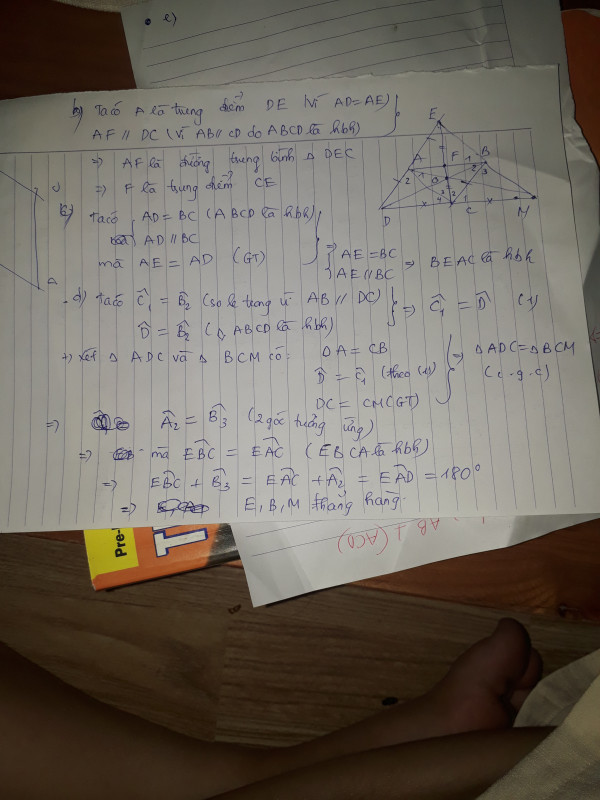 e)
b) Ta có A là trung điểm DE (vì AD=AE)
AF // DC (vì AB // CD do ABCD là hbh)
=> AF là đường trung bình Δ DEC
=> F là trung điểm CE
c) Ta có AD = BC (ABCD là hbh)
AD // BC
mà AE = AD (GT)
=> AE = BC
AE // BC => BEAC là hbh
d) Ta có Ĉ1 = B̂2 (so le trong vì AB // DC)
D̂ = B̂2 (ABCD là hbh)
=> Ĉ1 = D̂ (1)
+) Xét Δ ADC và Δ BCM có:
DA = CB
D̂ = Ĉ1 (theo (1))
DC = CM (GT)
=> ΔADC = ΔBCM
(c.g.c)
=> Â2 = B̂3 (2 góc tương ứng)
=> mà EB̂C = EÂC (EBCA là hbh)
=> EB̂C + B̂3 = EÂC + Â2 = EÂD = 180°
=> E, B, M thẳng hàng.
E
A F 1 B
2 1 O 2 3
D x C 1 x M
Pre-
AB ⊥ (ACD)